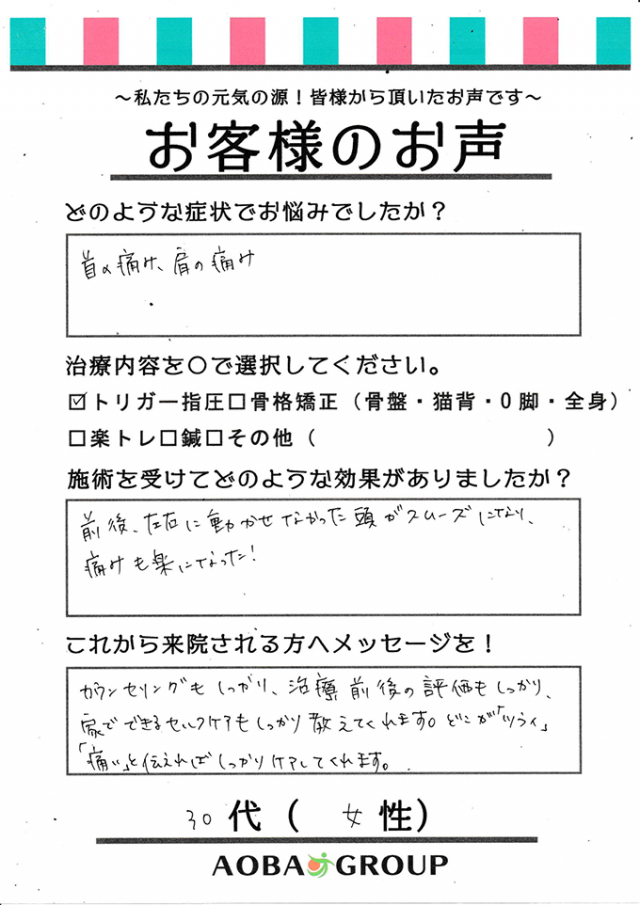 ～私たちの元気の源！皆様から頂いたお声です～
お客様のお声
どのような症状でお悩みでしたか？
首の痛み、肩の痛み
治療内容を○で選択してください。
☑トリガー指圧□骨格矯正（骨盤・猫背・O脚・全身）
□楽トレ□鍼□その他（　　　　　　　　　　）
施術を受けてどのような効果がありましたか？
前後、左右に動かせなかった頭がスムーズになり、
痛みも楽になった！
これから来院される方へメッセージを！
カウンセリングもしっかり、治療前後の評価もしっかり、
家でできるセルフケアもしっかり教えてくれます。どこが「ツライ」
「痛い」と伝えればしっかりケアしてくれます。
30代（女性）
AOBA GROUP